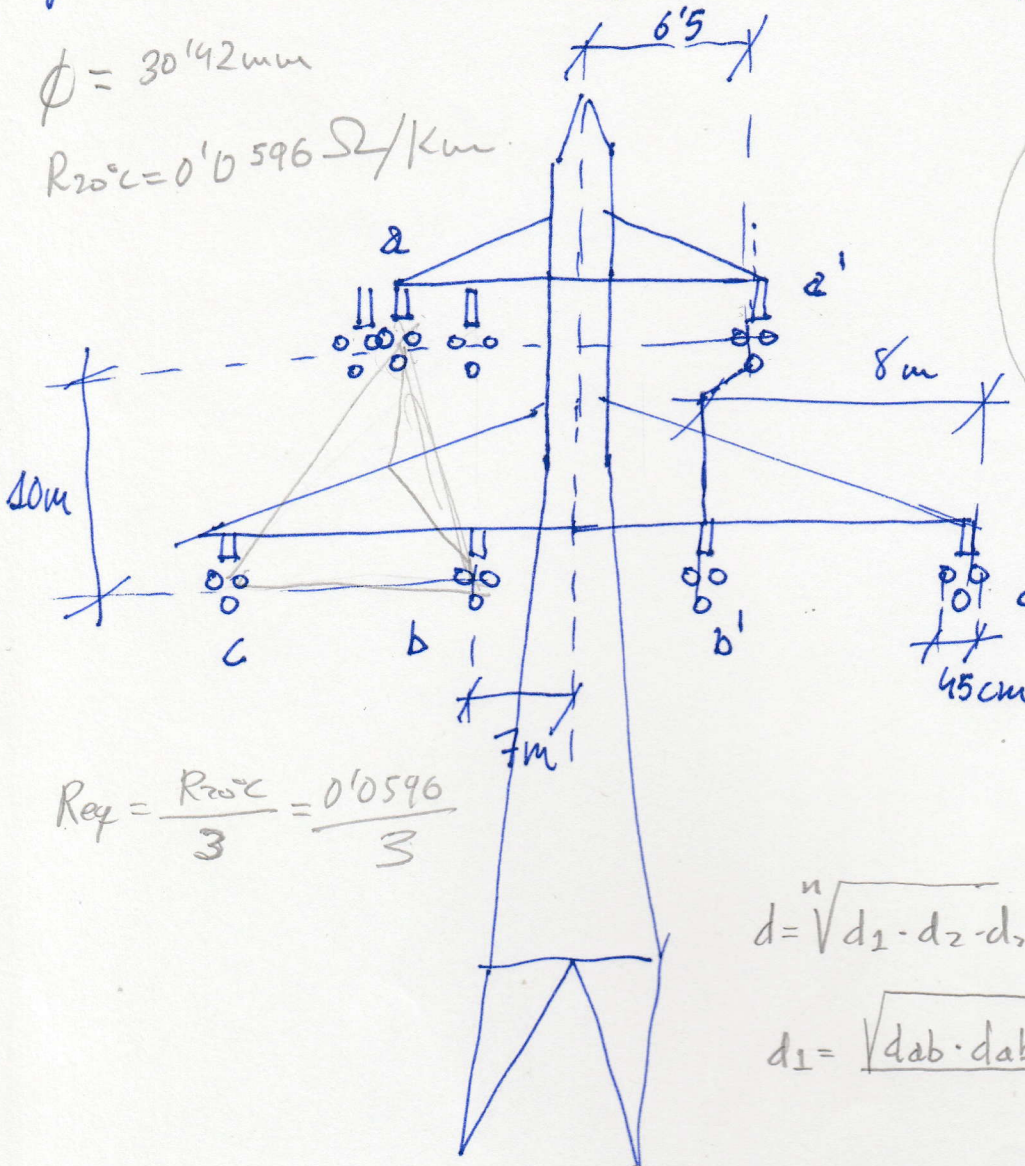 6'5
ϕ = 30'42mm
R20°C = 0'0596 Ω/Km
a
a'
8m
10m
c
b
b'
45cm
7m
Req = R20°C / 3 = 0'0596 / 3
d = ⁿ√d1 · d2 · d
d1 = √dab · dab